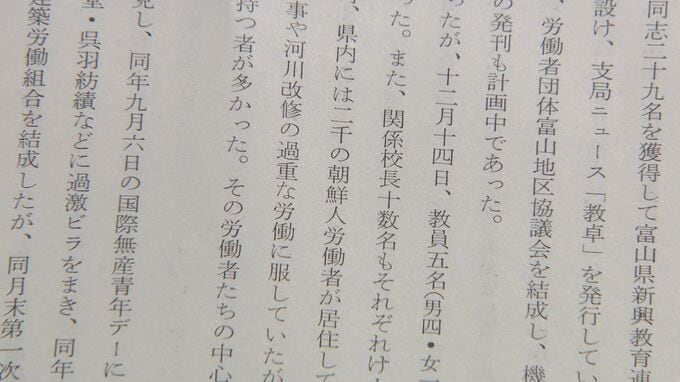 同志二十九名を獲得して富山県新興教育連
設け、支局ニュース「教卓」を発行してい
、労働者団体富山地区協議会を結成し、機
の発刊も計画中であった。
ったが、十二月十四日、教員五名(男四・女一
った。また、関係校長十数名もそれぞれけん
、県内には二千の朝鮮人労働者が居住して
事や河川改修の過重な労働に服していたが
持つ者が多かった。その労働者たちの中心
見し、同年九月六日の国際無産青年デーに
堂・呉羽紡績などに過激ビラをまき、同年
建築労働組合を結成したが、同月末第一次